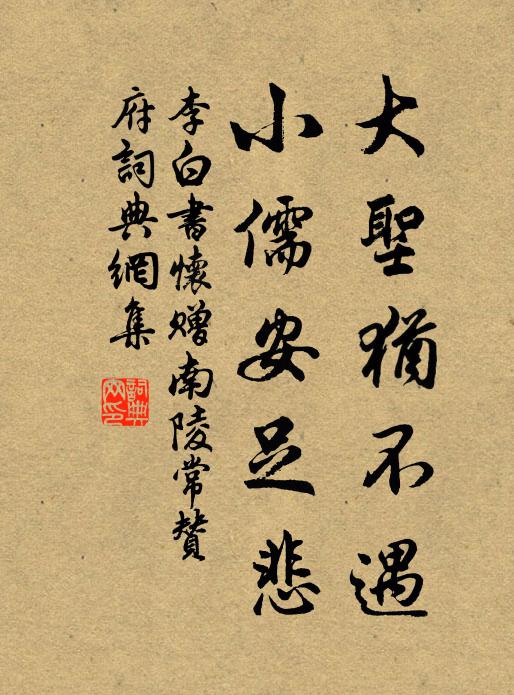 大聖猶不遇
小儒安足悲
李白書懷贈南陵常贊
府詞典網集
詞典